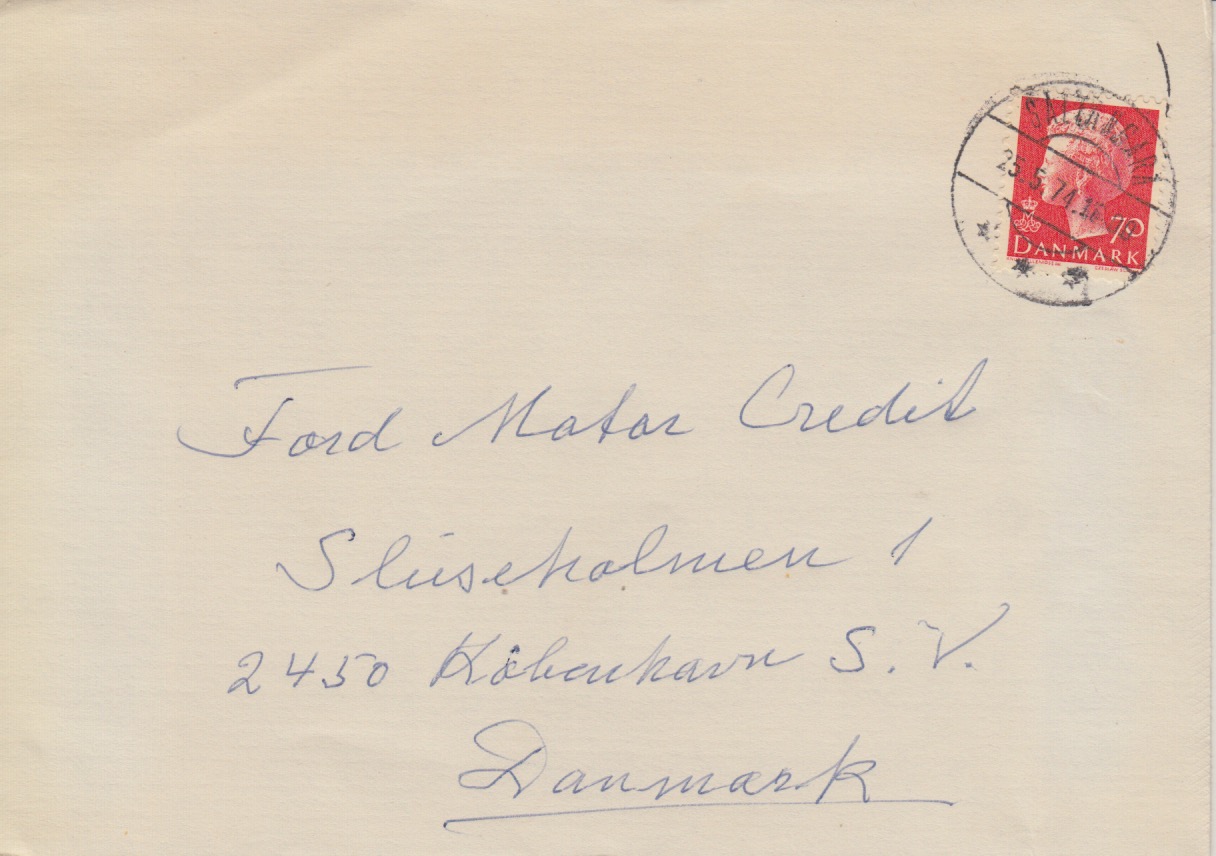 SALTANGARA
70
DANMARK
Ford Motor Credit
Sluseholmen 1
2450 København S. V.
Danmark